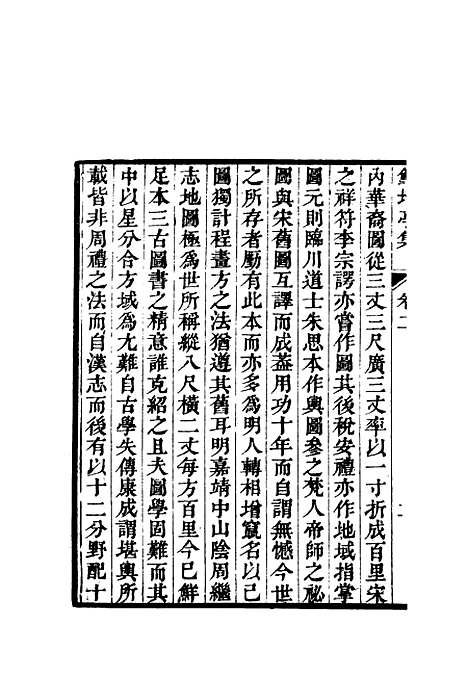 卷二
內華裔圖從三丈三尺廣三丈率以一寸折成百里宋
之祥符李宗諤亦嘗作圖其後稅安禮亦作地域指掌
圖元則臨川道士朱思本作輿圖參之梵人帝師之祕
國與宋舊圖互譯而成蓋用功十年而自謂無憾今世
之所存者厪有此本而亦多為明人轉相增竄名以己
圖獨計程畫方之法猶遵其舊耳明嘉靖中山陰周繼
志地圖極為世所稱縱八尺橫二丈每方百里今已鮮
足本三古圖書之精意誰克紹之且夫圖學固難而其
中以星分合方域為尤難自古學失傳康成謂堪輿所
載皆非周禮之法而自漢志而後有以十二分野配十